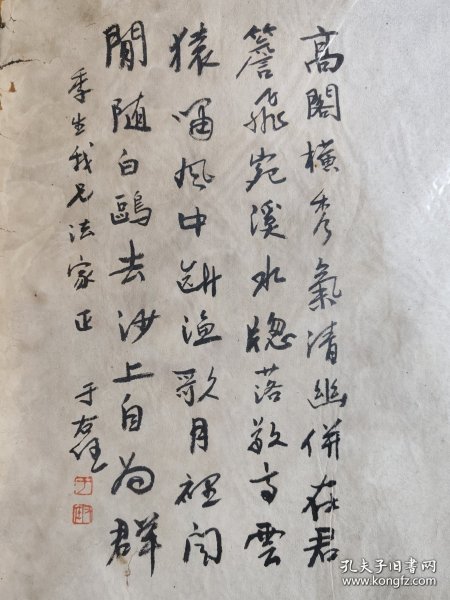 高閣橫秀氣清幽併在君
簷飛宛溪水牎落敬亭雲
猿嘯風中斷漁歌月裡聞
閒随白鷗去沙上自為群
季生我兄法家正
于右任
孔夫子旧书网
www.kongfz.com